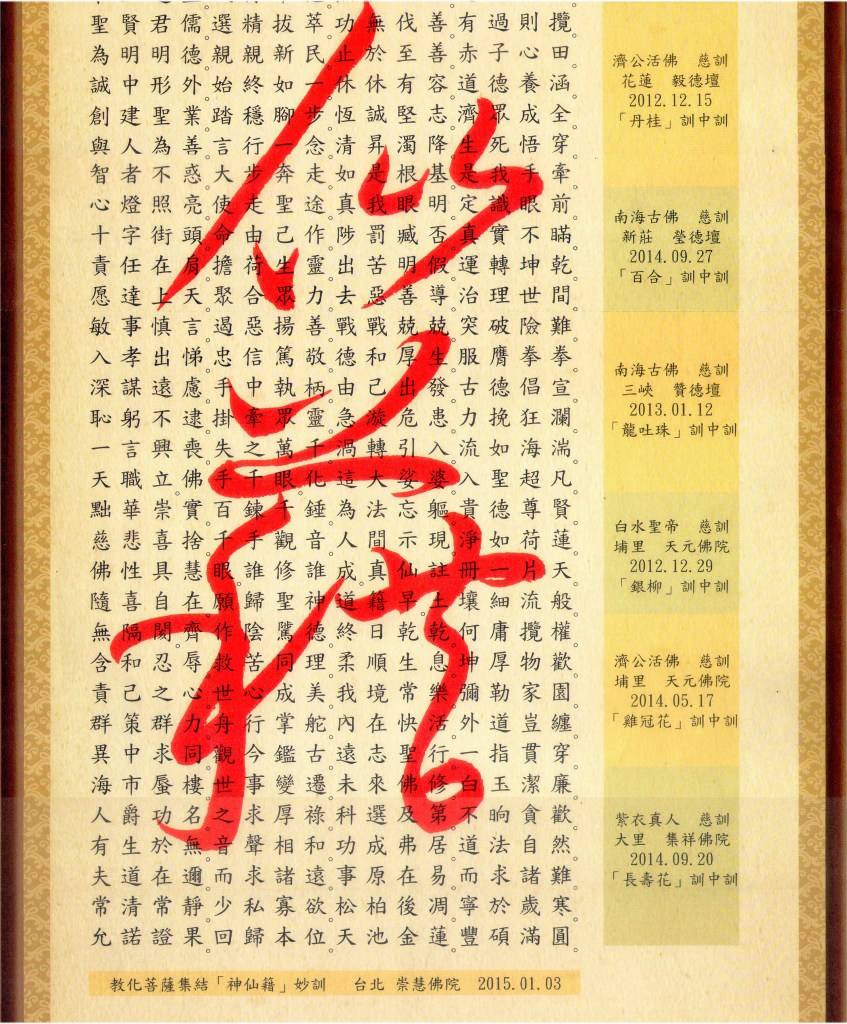 攬田涵全穿牽前瞞乾間難拳宣瀾湍凡賢蓮天般權歡園纏穿廉歡然難寒圓
則心養成悟手眼不坤世險拳倡狂海超尊荷片流攬物家豈貫潔貪自諸歲滿
過子德眾死我識實轉理破膺德挽如聖德如一細庸厚勒道指玉晌法求於碩
有赤道濟生是定真運治突服古力流入貴淨冊壤何坤彌外一白不道而寧豐
善善容志降基明否假導兢生發患入婆軀現註土乾息樂活行修第居易凋蓮
伐至有堅濁根眼臧明善兢厚出危引娑忘示仙早乾生常快聖佛及弗在後金
無於休誠昇是我罰苦惡戰和己漩轉大法間真籍日順境在志來選成原柏池
功止休恆清如真陟出去戰德由急渦這為人成道終柔我內遠未科功事松天
萃民一步念走途作靈力善敬柄靈千化錘音誰神德理美舵古遷祿和遠欲位
拔新如腳一奔聖己生眾揚篤執眾萬眼千觀修聖騭同成掌鑑變厚相諸寡本
精親終穩行步走由荷合惡信中牽之千鍊手誰歸陰苦心行今事求聲求私歸
選親始踏言大使命擔聚遏忠手掛失手百千眼願作救世舟觀世之音而少回
儒德外業善惑亮頭肩天言悌慮逮喪佛實捨慧在齊辱心力同樓名無邇靜果
君明形聖為不照街在上慎出遠不興立崇喜具自閡忍之群求蜃功於在常證
賢明中建人者燈字任達事孝謀躬言職華悲性喜隔和己策中市爵生道清諾
聖為誠創與智心十責愿敏入深恥一天點慈佛隨無含責群異海人有夫常允
仙籍
濟公活佛　慈訓
花蓮　毅德壇
2012.12.15
「丹桂」訓中訓
南海古佛　慈訓
新莊　瑩德壇
2014.09.27
「百合」訓中訓
南海古佛　慈訓
三峽　贊德壇
2013.01.12
「龍吐珠」訓中訓
白水聖帝　慈訓
埔里　天元佛院
2012.12.29
「銀柳」訓中訓
濟公活佛　慈訓
埔里　天元佛院
2014.05.17
「雞冠花」訓中訓
紫衣真人　慈訓
大里　集祥佛院
2014.09.20
「長壽花」訓中訓
教化菩薩集結「神仙籍」妙訓　台北 崇慧佛院　2015.01.03